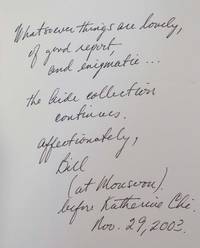 Whatsoever things are lovely,
of good report,
and enigmatic ...
the bride collection
continues.
affectionately,
Bill
(at Monsoon)
before Katherine Chi.
Nov. 29, 2003.